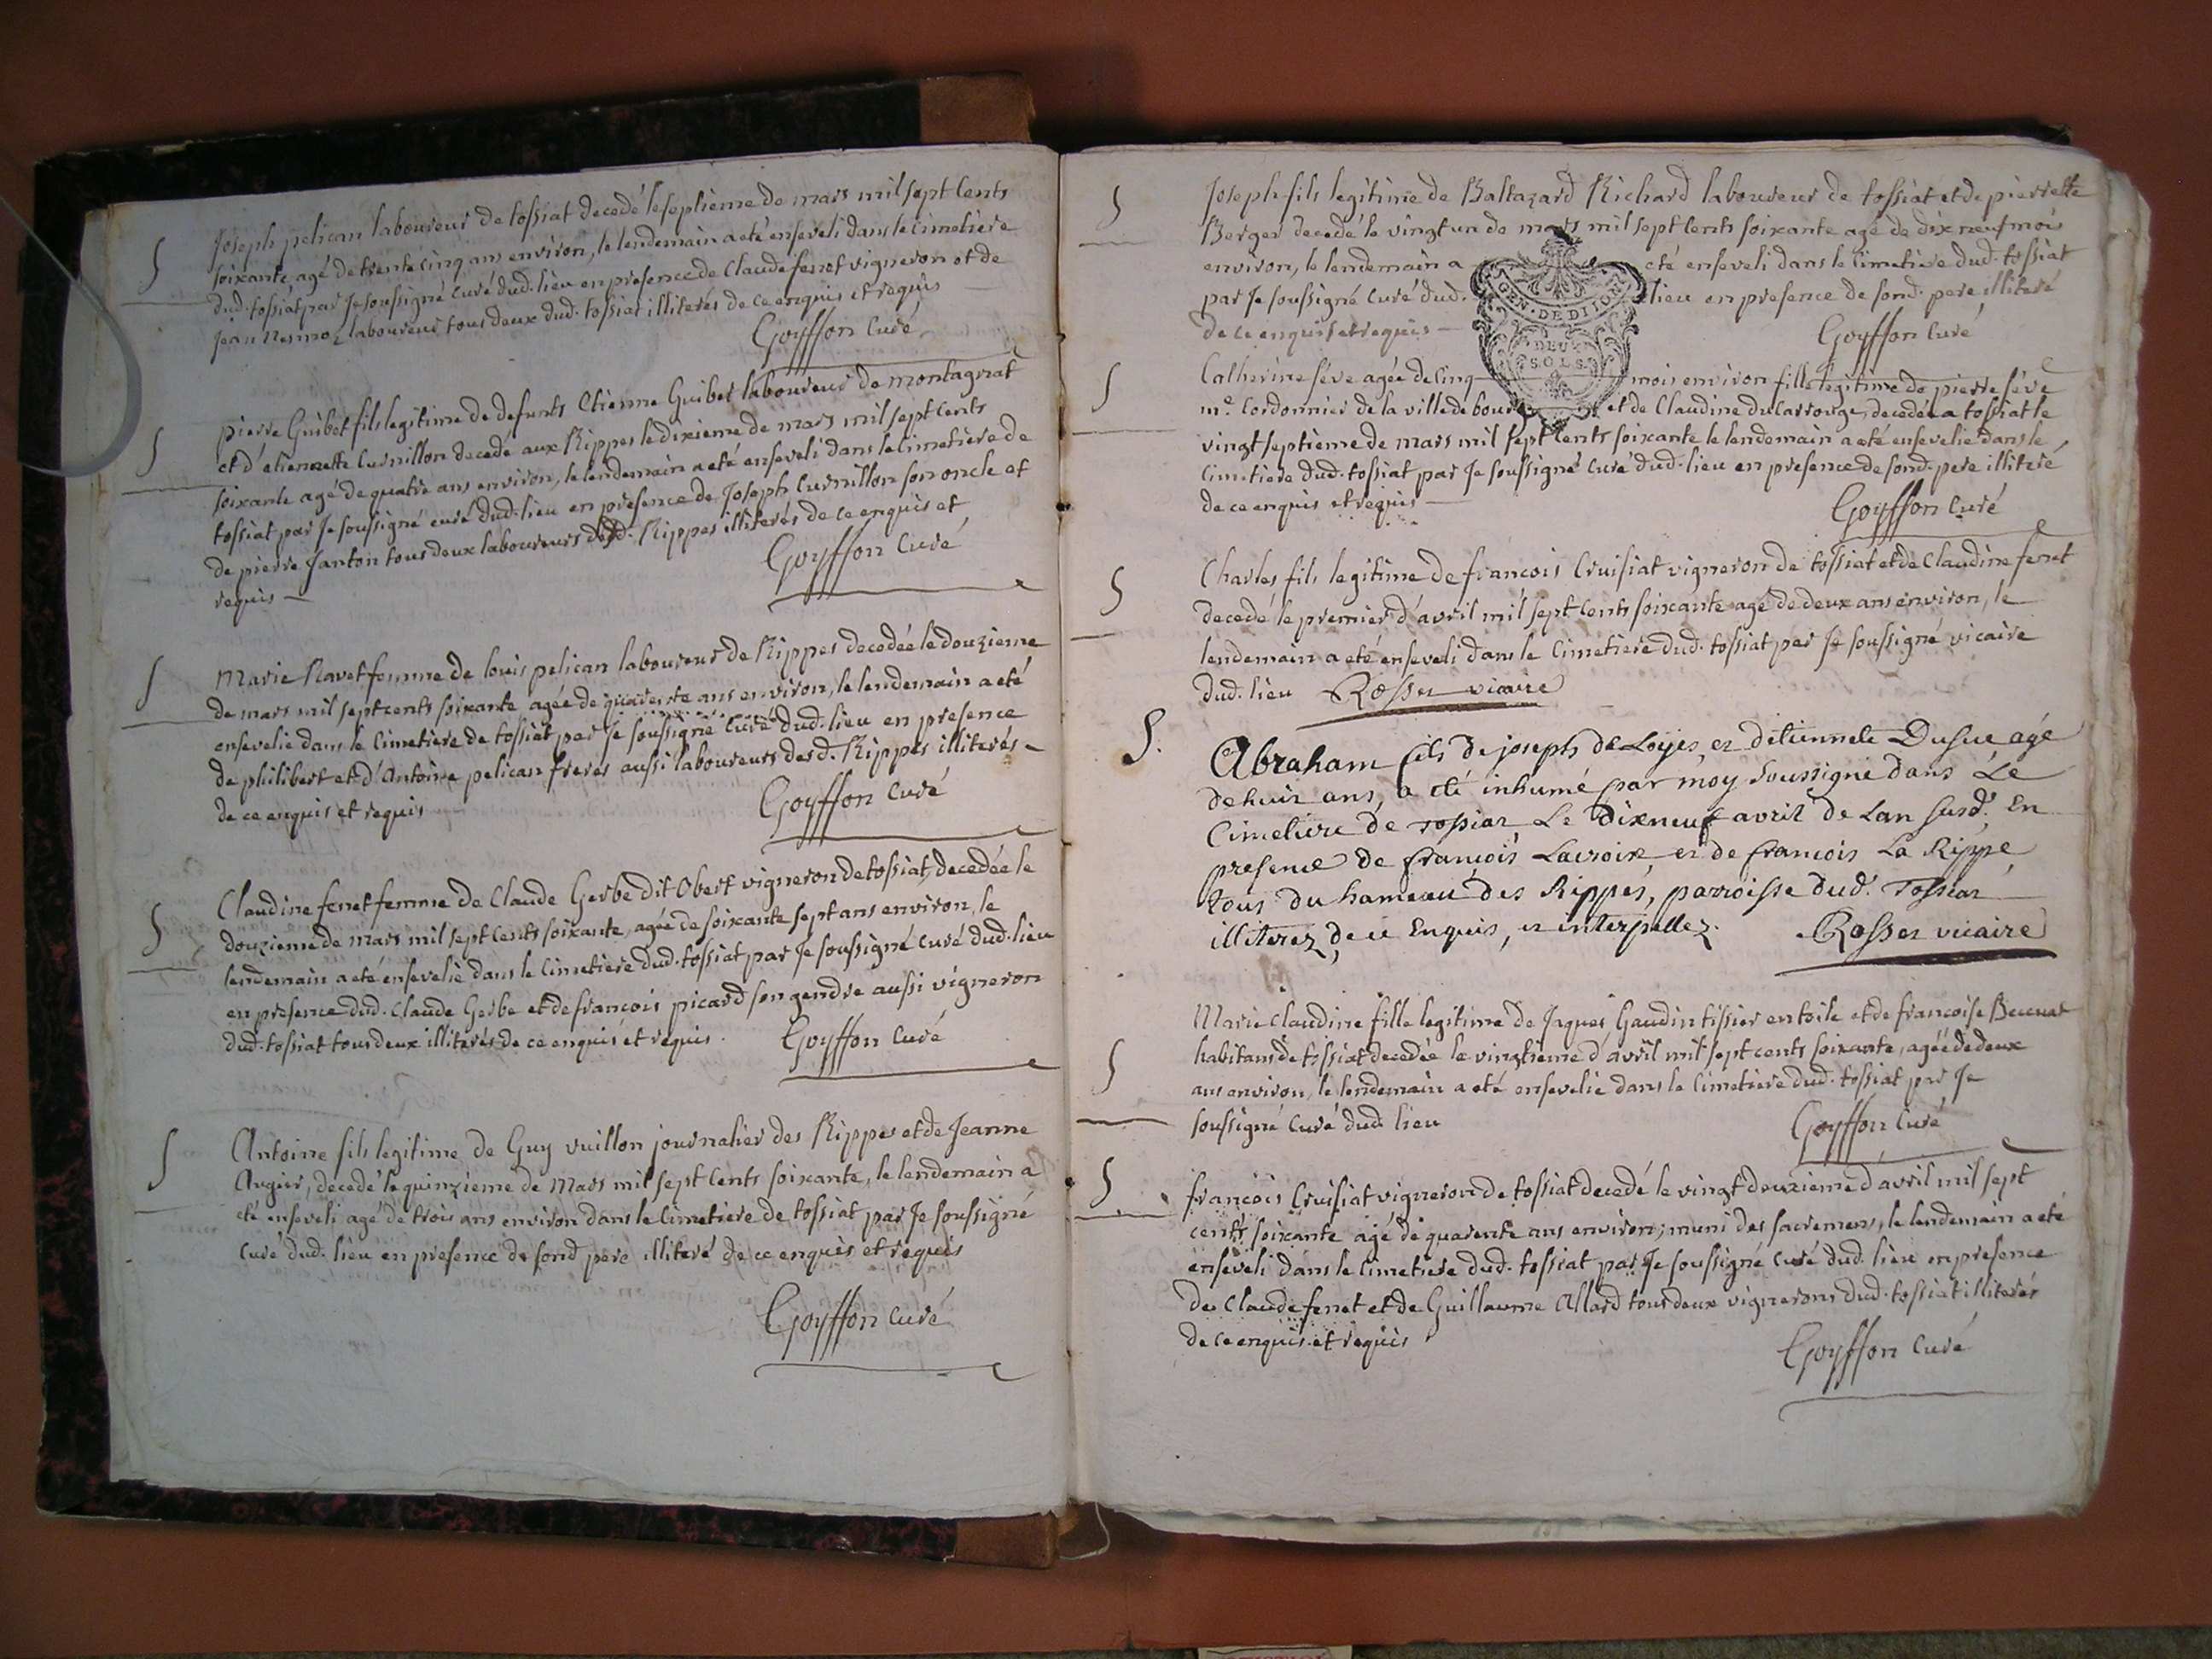 S
Joseph pelican laboureur de tossiat decedé le septième de mars mil sept cents
soixante, agé de trente cinq ans environ, le lendemain a eté enseveli dans le cimetiere
dud. tossiat par Je soussigné curé dud. lieu en presence de Claude fenet vigneron et de
Jean laboureur tous deux dud. tossiat illiterés de ce enquis et requis
Goyffon Curé
S
pierre Guibet fils legitime de defunts Etienne Guibet laboureur de montagnat
et d'etiennette Curnillon decedé aux Rippes le dixieme de mars mil sept cents
soixante agé de quatre ans environ, le lendemain a eté enseveli dans le cimetiere de
tossiat par Je soussigné curé dud. lieu en presence de Joseph Curnillon son oncle et
de pierre Janton tous deux laboureurs desd. Rippes illiterés de ce enquis et
requis
Goyffon Curé
S
Marie Ravet femme de louis pelican laboureur de Rippes decedée le douzieme
de mars mil sept cents soixante agée de quarente ans environ, le lendemain a eté
ensevelie dans le cimetiere de tossiat par Je soussigné curé dud. lieu en presence
de philibert et d'Antoine pelican freres aussi laboureurs desd. Rippes illiterés
de ce enquis et requis
Goyffon curé
S
Claudine fenet femme de Claude Gerbe dit Obert vigneron de tossiat, decedée le
douzieme de mars mil sept cents soixante, agée de soixante sept ans environ, le
lendemain a eté ensevelie dans le cimetiere dud. tossiat par Je soussigné curé dud. lieu
en presence dud. Claude Gerbe et de francois picard son gendre aussi vigneron
dud. tossiat tous deux illiterés de ce enquis et requis.
Goyffon Curé
S
Antoine fils legitime de Guy vuillon journalier des Rippes et de Jeanne
Augier, decedé le quinzieme de mars mil sept cents soixante, le lendemain a
eté enseveli agé de trois ans environ dans le cimetiere de tossiat par Je soussigné
curé dud. lieu en presence de sond. pere illiteré de ce enquis et requis
Goyffon Curé
S
Joseph fils legitime de Baltazard Richard laboureur de tossiat et de pierrette
Berger decedé le vingt un de mars mil sept cents soixante agé de dix neuf mois
environ, le lendemain a eté enseveli dans le cimetiere dud. tossiat
par Je soussigné curé dud. lieu en presence de sond. pere illiteré
de ce enquis et requis
Goyffon Curé
GEN. DE DIJON
DEUX
SOLS
S
Catherine séve agée de cinq mois environ fille legitime de pierre séve
me. Cordonnier de la ville de bourg et de Claudine ducarrouge, decedée a tossiat le
vingt septieme de mars mil sept cents soixante le lendemain a eté ensevelie dans le
cimetiere dud. tossiat par Je soussigné curé dud. lieu en presence de sond. pere illiteré
de ce enquis et requis
Goyffon Curé
S
Charles fils legitime de francois Cruisiat vigneron de tossiat et de Claudine fenet
decedé le premier d'avril mil sept cents soixante agé de deux ans environ, le
lendemain a eté enseveli dans le Cimetiere dud. tossiat par Je soussigné vicaire
dud. lieu Rosser vicaire
S.
Abraham fils de joseph de Loyes et detiennete Dusue agé
de huit ans, a eté inhumé par moy soussigné dans Le
Cimetiere de Tossiat Le dixneuf avril de Lan susd. En
presence de francois Lacroix et de francois La Rippe
tous du hameau des Rippes, parroisse dud. Tossiat
illiterez, de ce Enquis, et interpellez. Rosser vicaire
S
Marie Claudine fille legitime de Jaques Gaudin tissier en toile et de francoise
habitans de tossiat decedée le vingtieme d'avril mil sept cents soixante, agée de deux
ans environ, le lendemain a eté ensevelie dans le cimetiere dud. tossiat par Je
soussigné curé dud. lieu
Goyffon Curé
S
francois Cruisiat vigneron de tossiat decedé le vingt deuxieme d'avril mil sept
cents soixante agé de quarente ans environ, muni des sacremens, le lendemain a eté
enseveli dans le cimetiere dud. tossiat par Je soussigné curé dud. lieu en presence
de Claude fenet et de Guillaume Allard tous deux vignerons dud. tossiat illiterés
de ce enquis et requis
Goyffon Curé